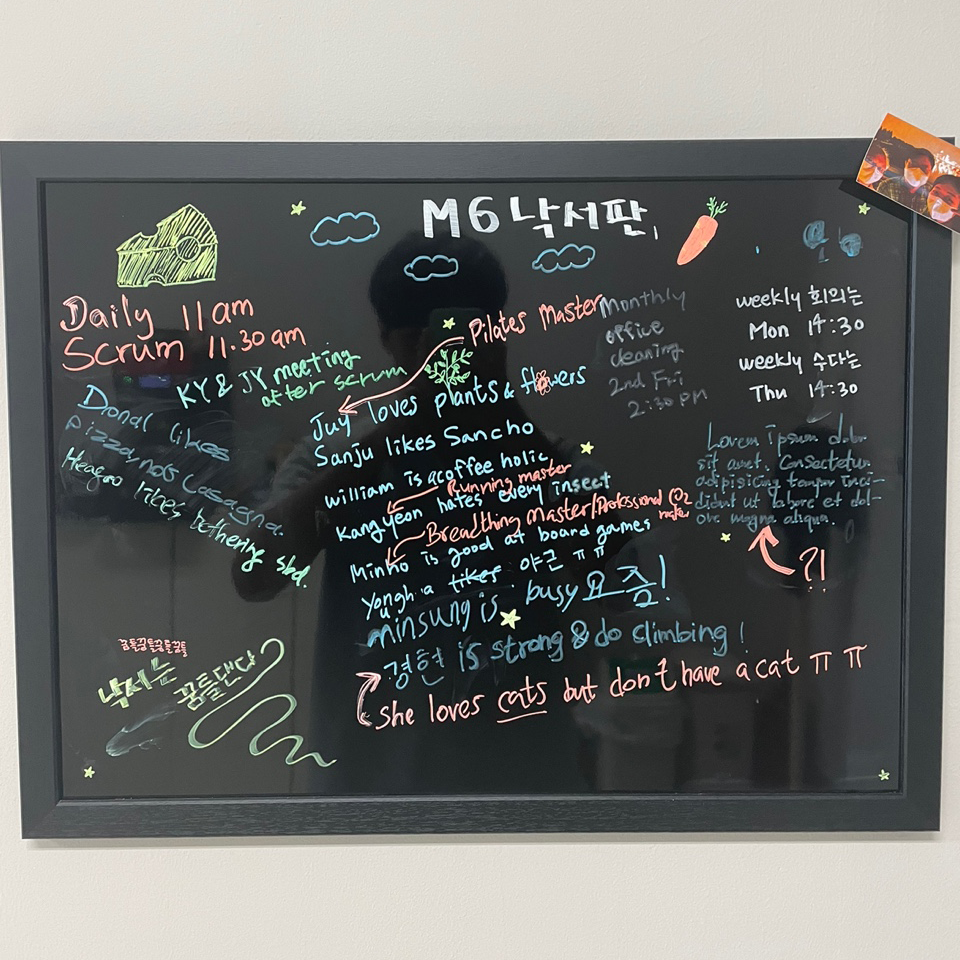 M6 낙서판
Daily 11am
Scrum 11.30am
KY & JY meeting
after scrum
Donal likes
pizza, not Lasagna.
likes bothering sbd.
Pilates Master
Juy loves plants & flowers
Sanju likes Sancho
william is a coffee holic
Running master
Kangyeon hates every insect
Breathing Master/Professional CO2
maker
Minho is good at board games
Yongha likes 야근 ㅠㅠ
minsung is busy 요즘!
경현 is strong & do climbing!
she loves cats but don't have a cat ㅠㅠ
Monthly
office
cleaning
2nd Fri
2:30 PM
weekly 회의는
Mon 14:30
weekly 수다는
Thu 14:30
Lorem ipsum dolor
sit amet. Consectetur
adipisicing tempor inci-
didnt ut labore et dol-
ore magna aliqua.
?!
꿈틀꿈틀꿈틀꿈틀
낙서는
꿈틀댄다